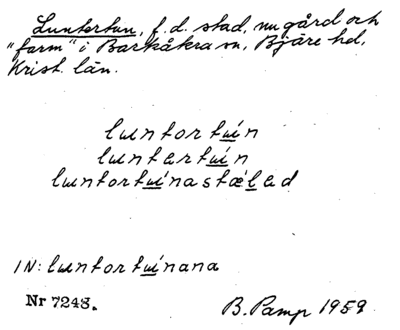 Luntertun, f.d. stad, nu gård och
"farm" i Barkåkra sn, Bjäre hd,
Krist. län.
luntortúin
luntertúin
luntortúinastæled
IN: luntortúinana
Nr 7248.
B. Pamp 1959